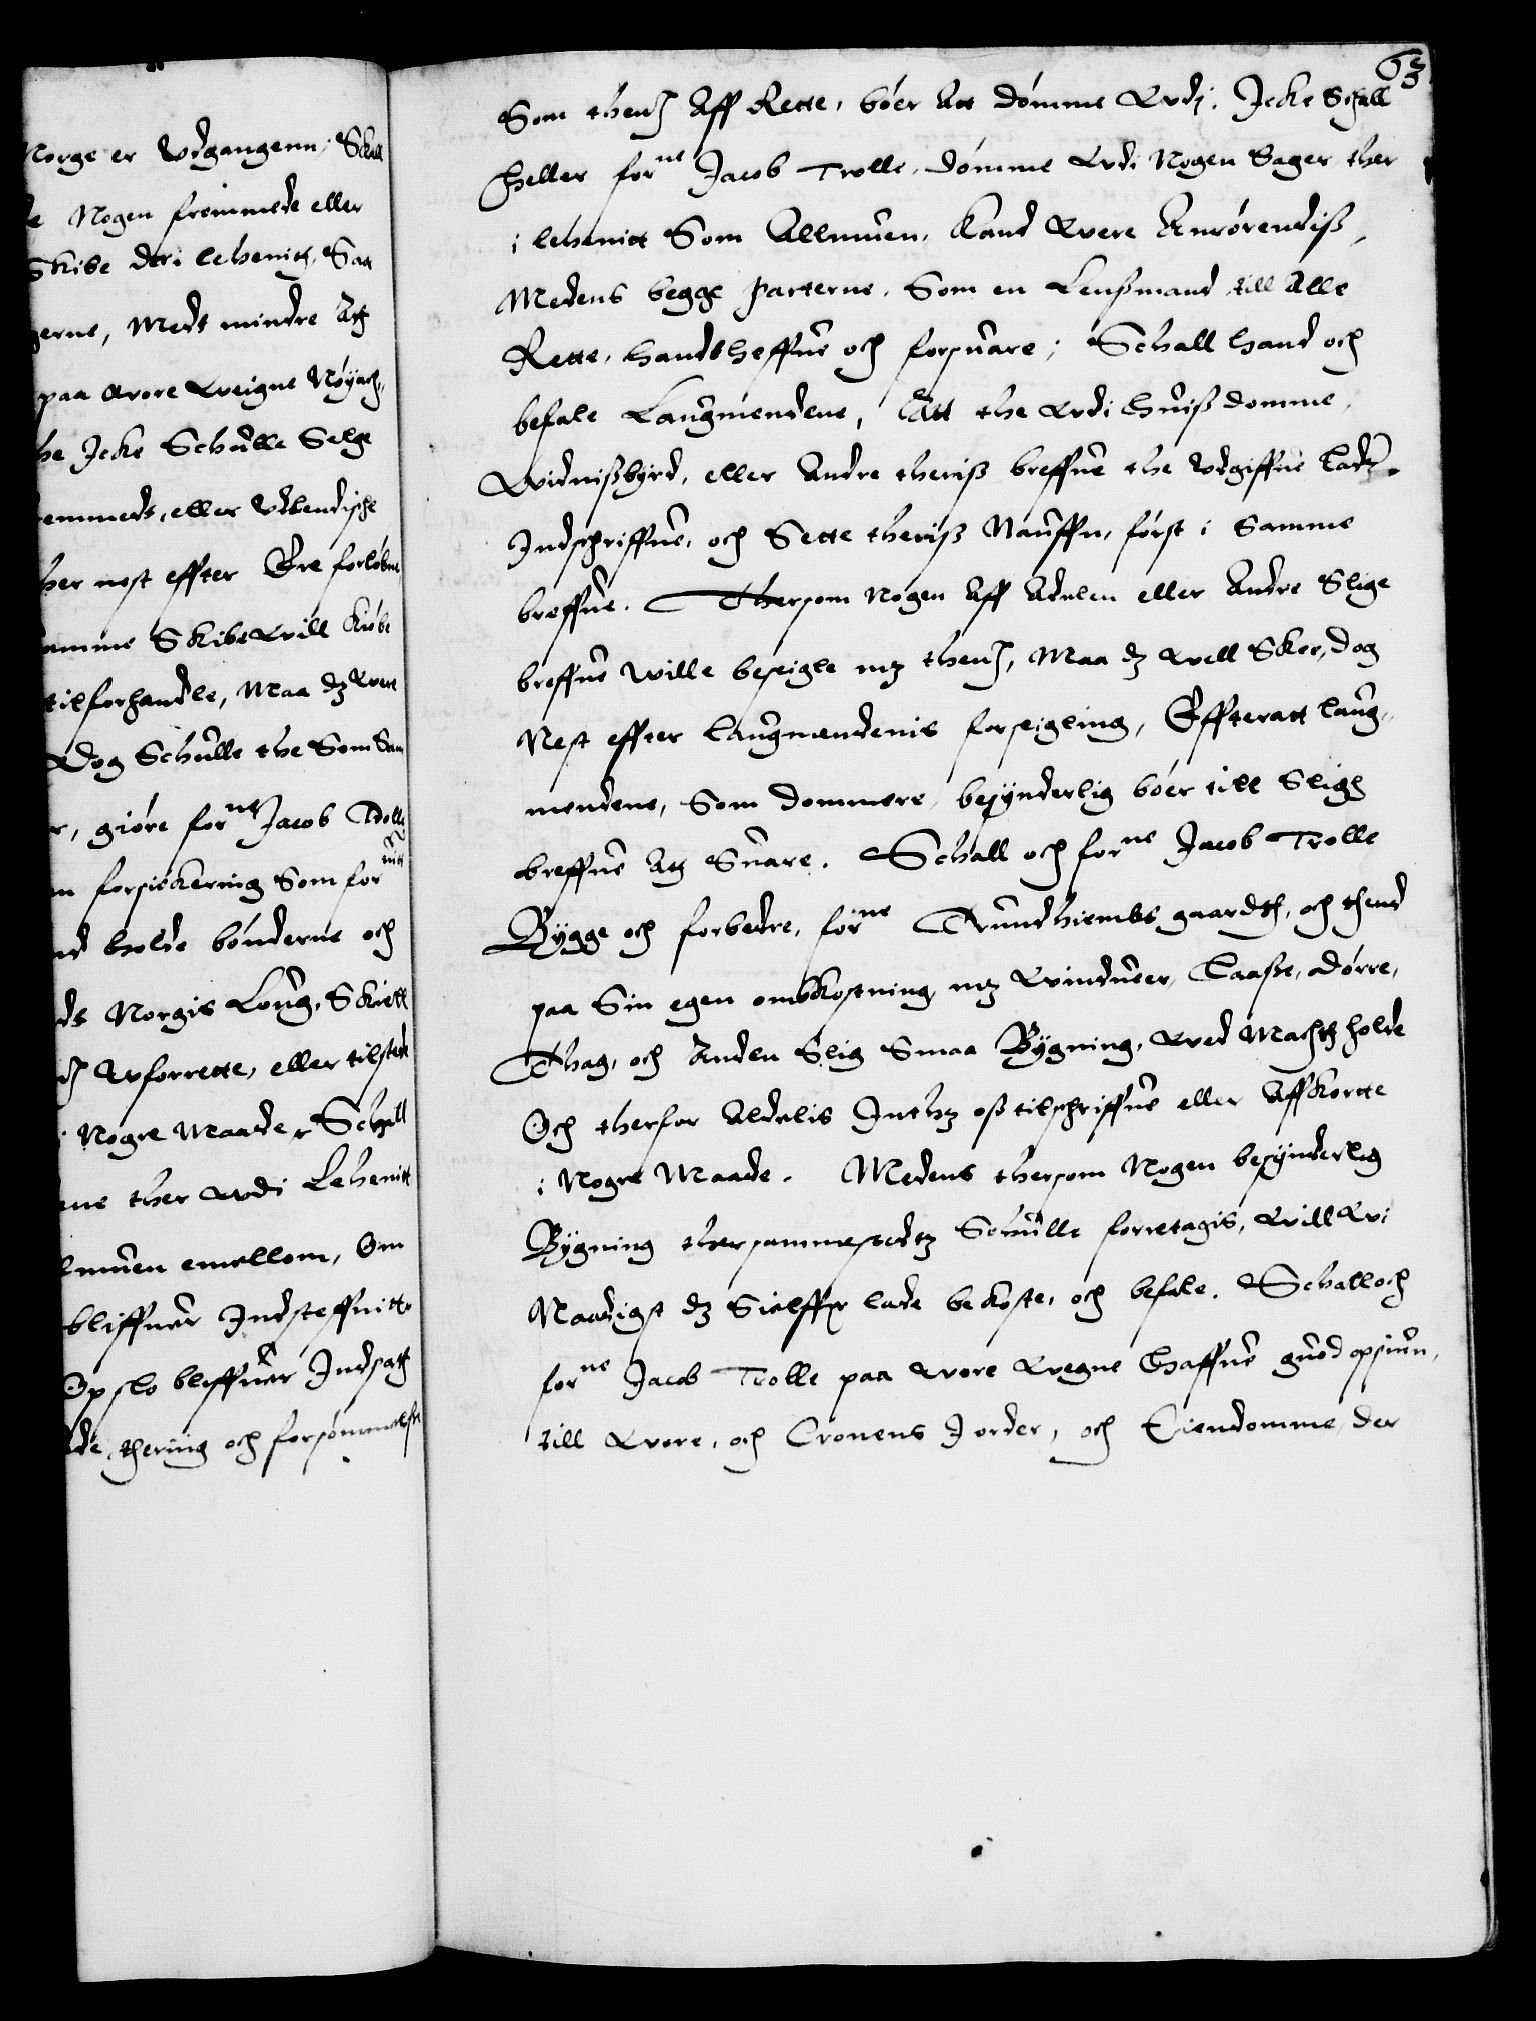 Norge er Vdgangenn, Skall
Nogen fremmede eller
Skibe der i lehenitt, Saa
gerne, Medt mindre Att
paa wore weigne Nøyach,
he Icke Schulle Selge
remmede, eller Vdlendische
her nest effter Ere forløbne
samme Skibe will Kiøbe
tilforhandle, Maa dz were
Dog Schulle the Som Sam
r, giøre forne Jacob Trolle
n forsickering Som fornitt
nd holde bønderne och
ds Norgis Loug, Skiell
Vforrette, eller tilstede
i Nogre Maade, Schall
ene ther vdi Lehenitt
lmuen emellom, Om
bliffuer Indsteffnitt
Opslo bliffuer Indsatt
de, thering och forsømmelse
63
Som thend Aff Rette, bøer Att dømme Vdi. Icke Schall
heller forne Jacob Trolle, dømme Vdi Nogen Sager ther
i lehenitt Som Allmuen, Kand Were Anrørendiss,
Medens begge Parterne, Som en Lenssmand till Alle
Rette, handtheffue och forsuare; Schall hand och
befale Laugmendene, Att the Vdi huiss domme,
Widnissbyrd, eller Andre theriss breffue the Vdgiffue ladz
Indschriffue, och Sette theriss Nauffn, først i Samme
breffue. Thersom Nogen Aff Adelen eller Andre Slige
breffue Wille beseigle mz thend, Maa dz well Skee, dog
Nest effter laugmendenis forseigling, Effteratt laug-
mendene, Som dommere, besynderlig bøer till Slige
breffue Att Suare. Schall och forne Jacob Trolle
Bygge och forbedre, forne Trundhiembs gaardt, och thend
paa Sin egen ombkostning mz Vinduer, Laasse, dørre,
Thag, och Anden Slig Smaa Bygning, Wed Macht holde
Och therfor Aldelis Inthz oss tilschriffue eller Affkortte
i Nogre Maade. Medens thersom Nogen besynderlig
Bygning thersammestedtz Schulle forretagis, Will Wi
Naadigst dz Sielffue lade bekoste, och befale. Schall och
forne Jacob Trolle paa wore Wegne haffue gued opsiuen,
till Wore, och Cronens Jorder, och Eiendomme, der